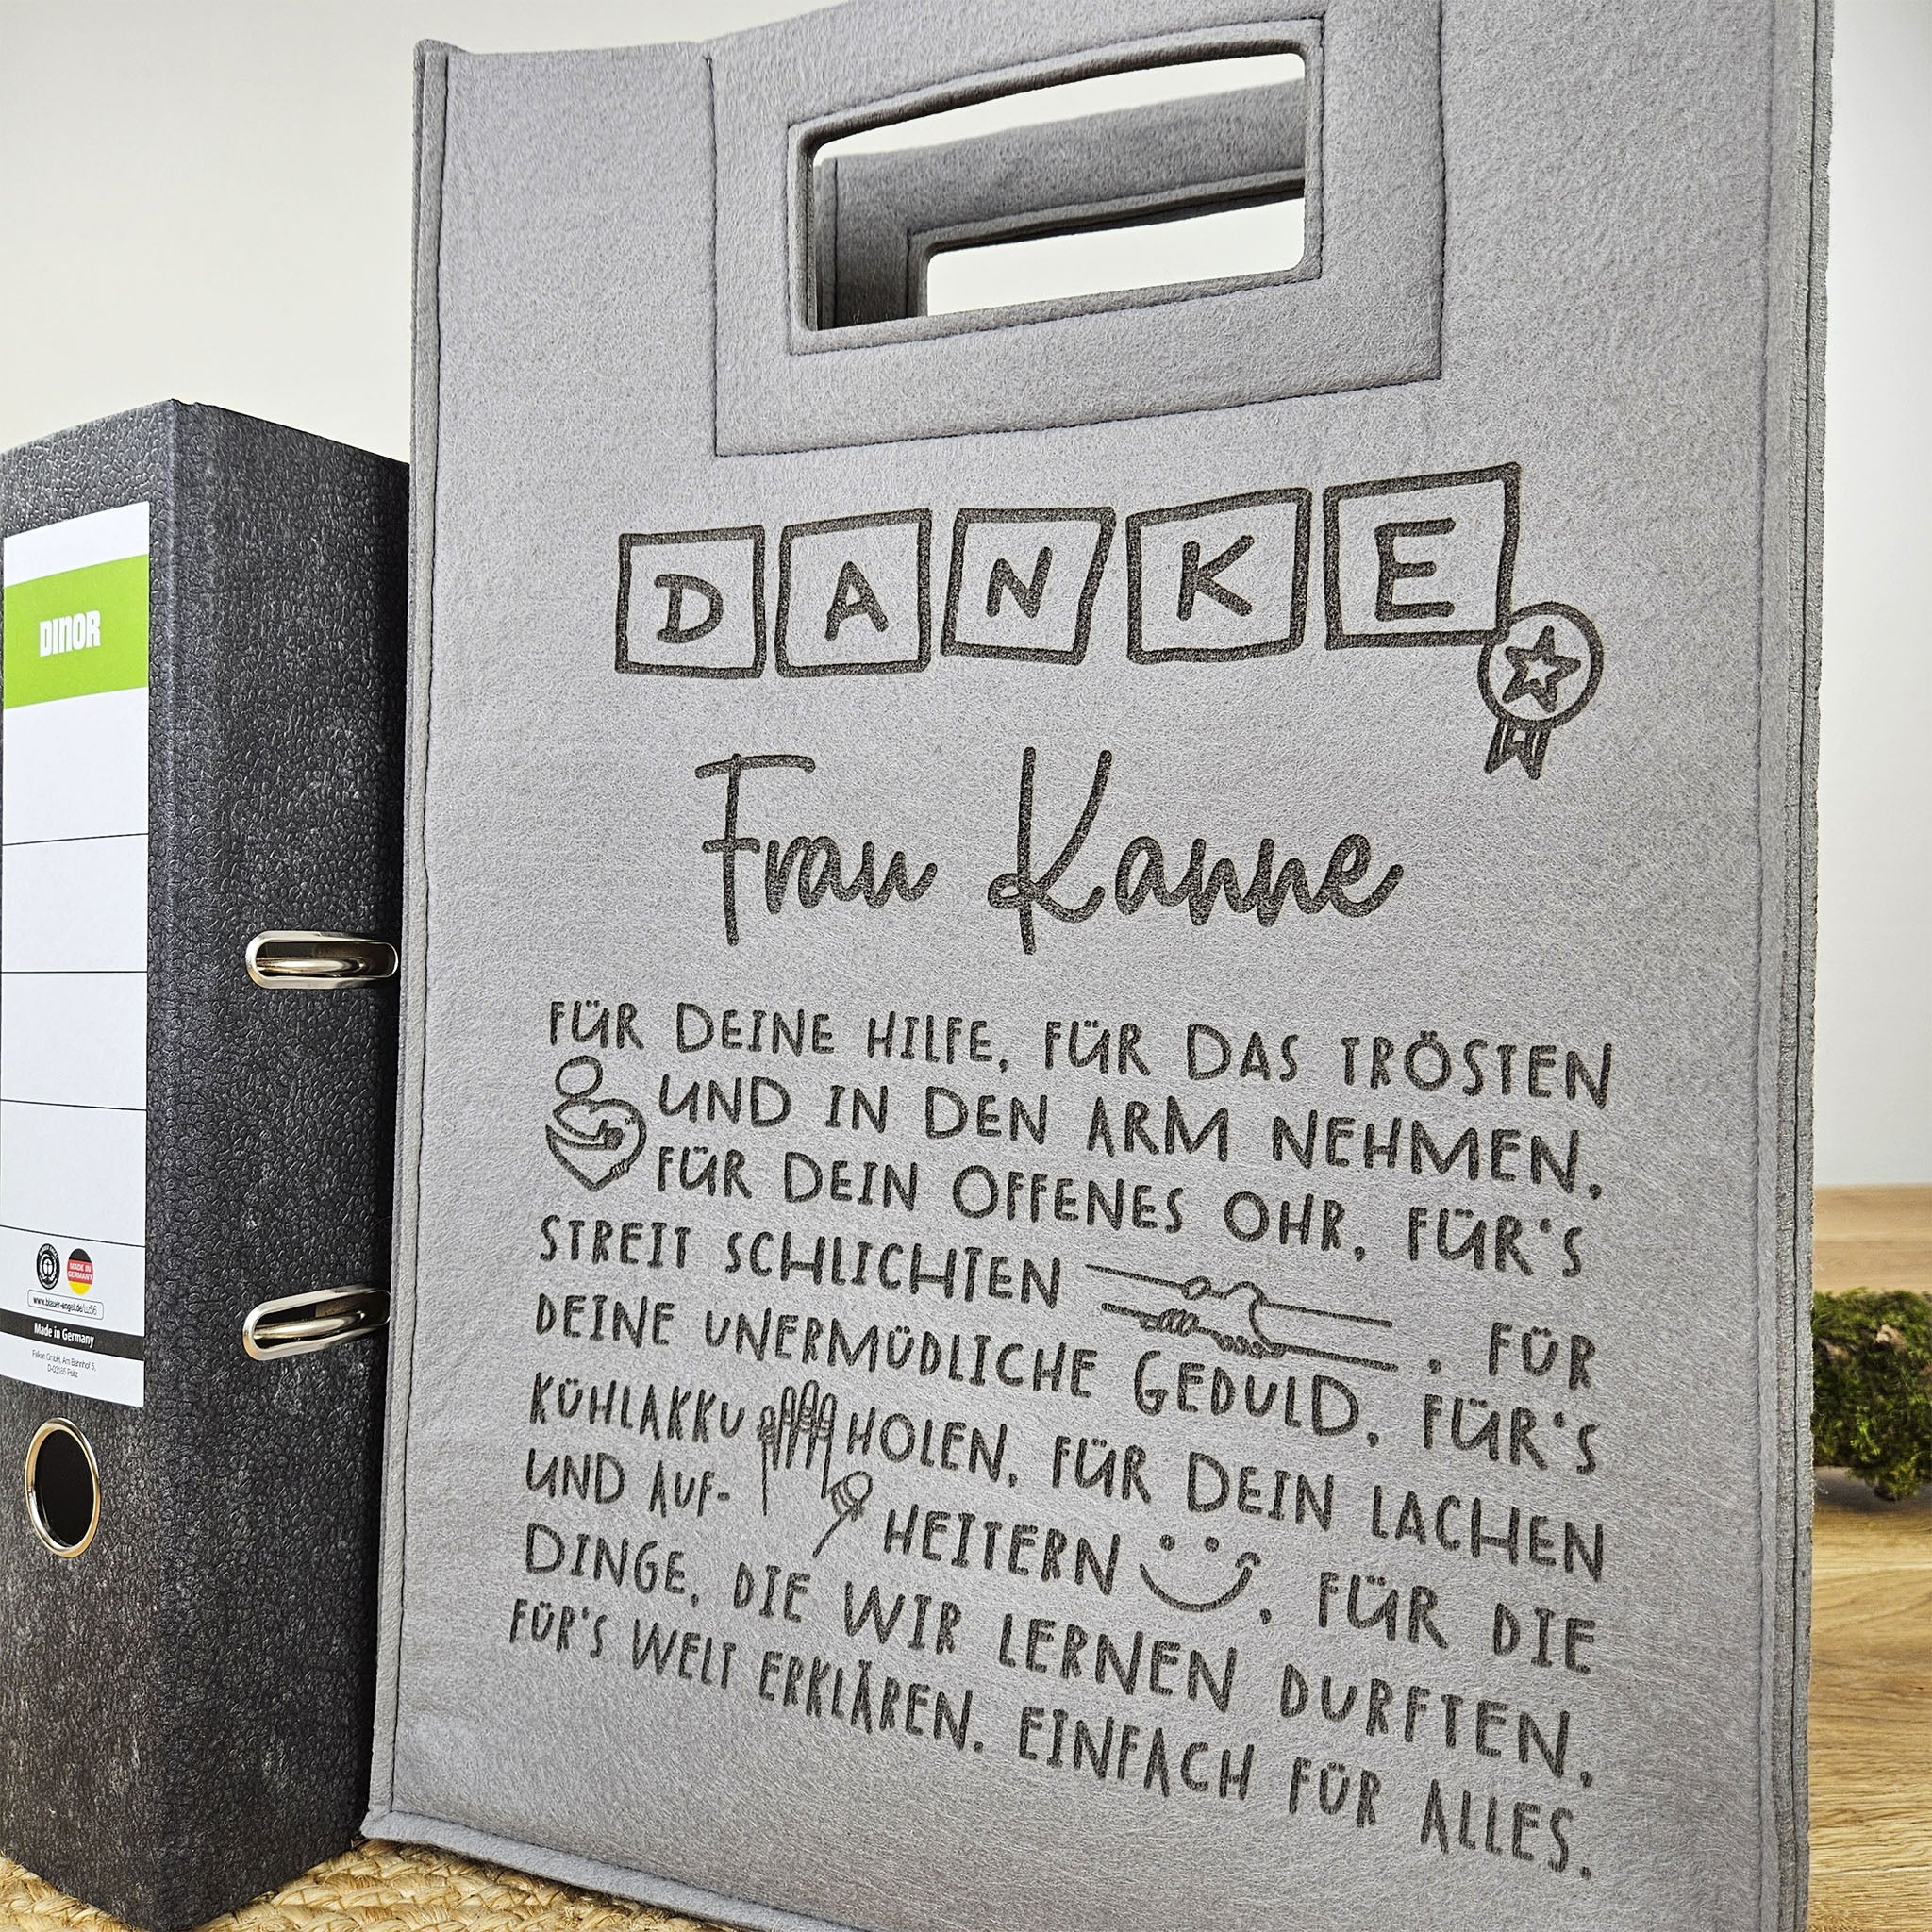 DANKE
Frau Kanne
FÜR DEINE HILFE, FÜR DAS TRÖSTEN
UND IN DEN ARM NEHMEN,
FÜR DEIN OFFENES OHR, FÜR'S
STREIT SCHLICHTEN , FÜR
DEINE UNERMÜDLICHE GEDULD, FÜR'S
KÜHLAKKU HOLEN, FÜR DEIN LACHEN
UND AUF- HEITERN , FÜR DIE
DINGE, DIE WIR LERNEN DURFTEN,
FÜR'S WELT ERKLÄREN. EINFACH FÜR ALLES.
DINOR
MADE IN GERMANY
www.blauer-engel.de/uz56
Made in Germany
Falken GmbH, Am Bahnhof 5,